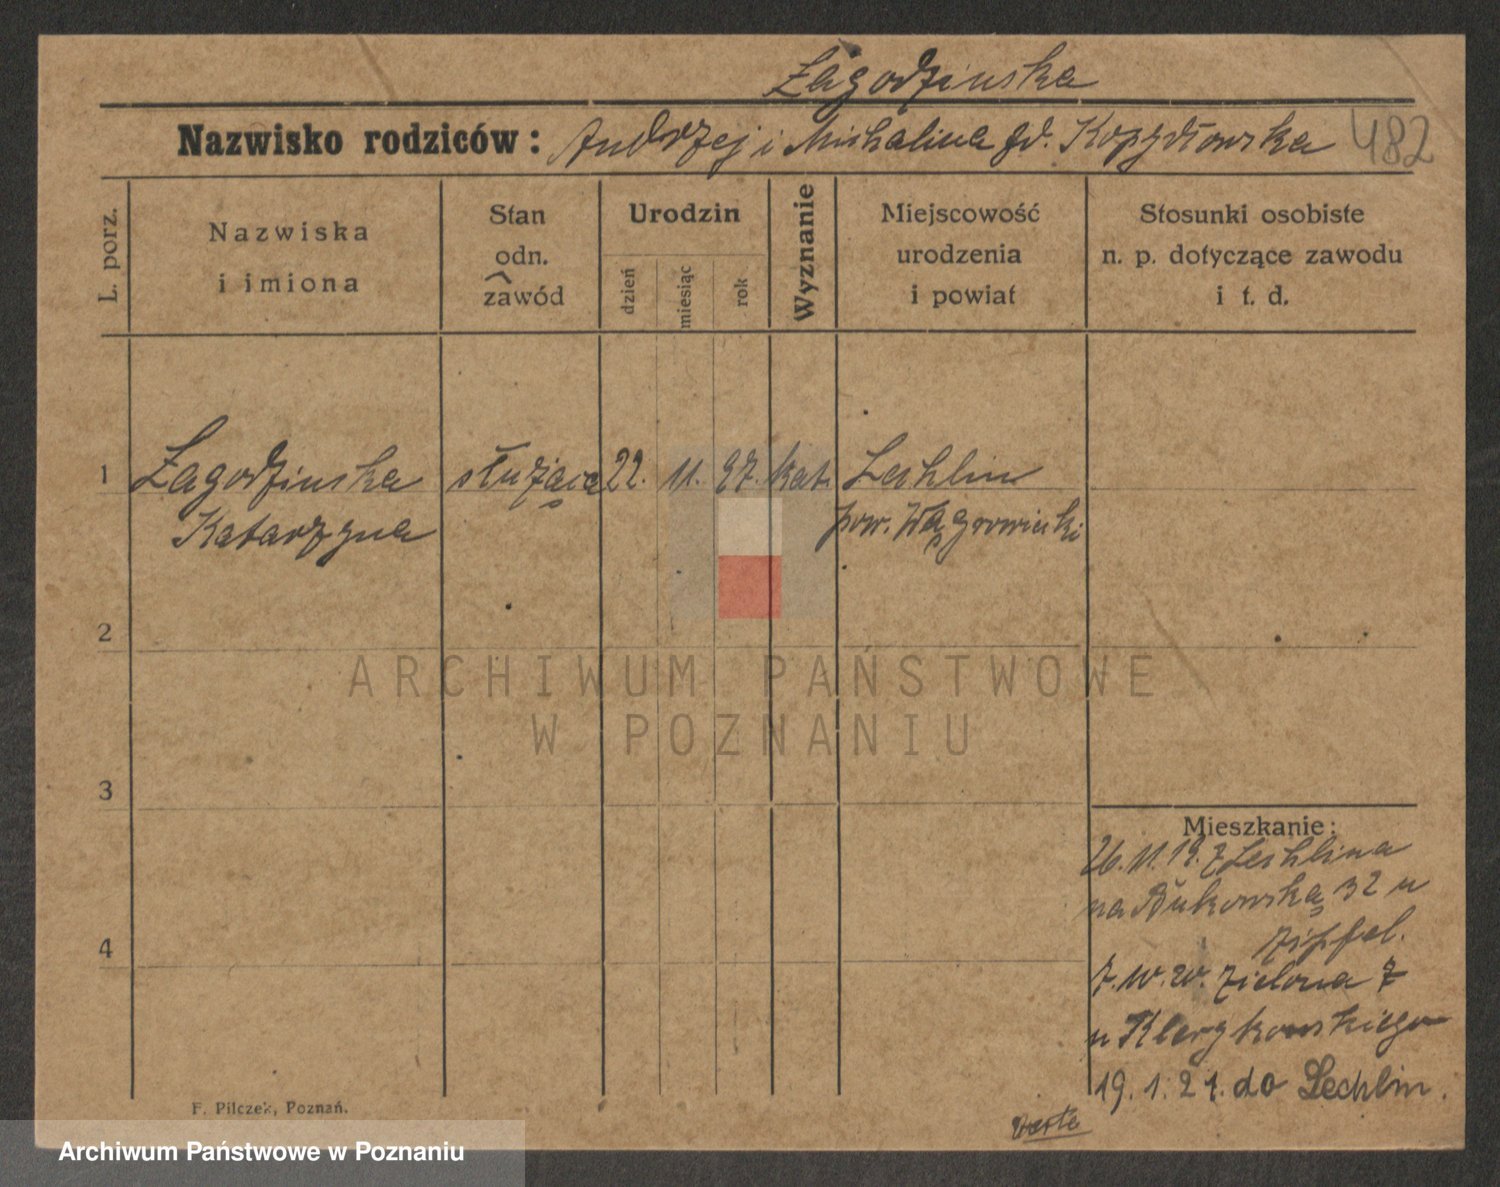 Żagodzinska
Nazwisko rodziców: Andrzej i Michalina
482
L. porz.
Nazwiska
i imiona
Stan
odn.
zawód
Urodzin
dzień
miesiąc
rok
Wyznanie
Miejscowość
urodzenia
i powiat
Stosunki osobiste
n. p. dotyczące zawodu
i t. d.
1 Żagodzinska służąca 22. 11. 97. kat. Lechlin
Katarzyna pow. Wągrowiecki
2
ARCHIWUM PAŃSTWOWE
W POZNANIU
3
Mieszkanie:
26.11.19. z Lechlina
na Bukowską 32 u
Zipfel.
Zielona 7
u
4
19. 1. 21. do Lechlin.
F. Pilczek, Poznań.
Archiwum Państwowe w Poznaniu